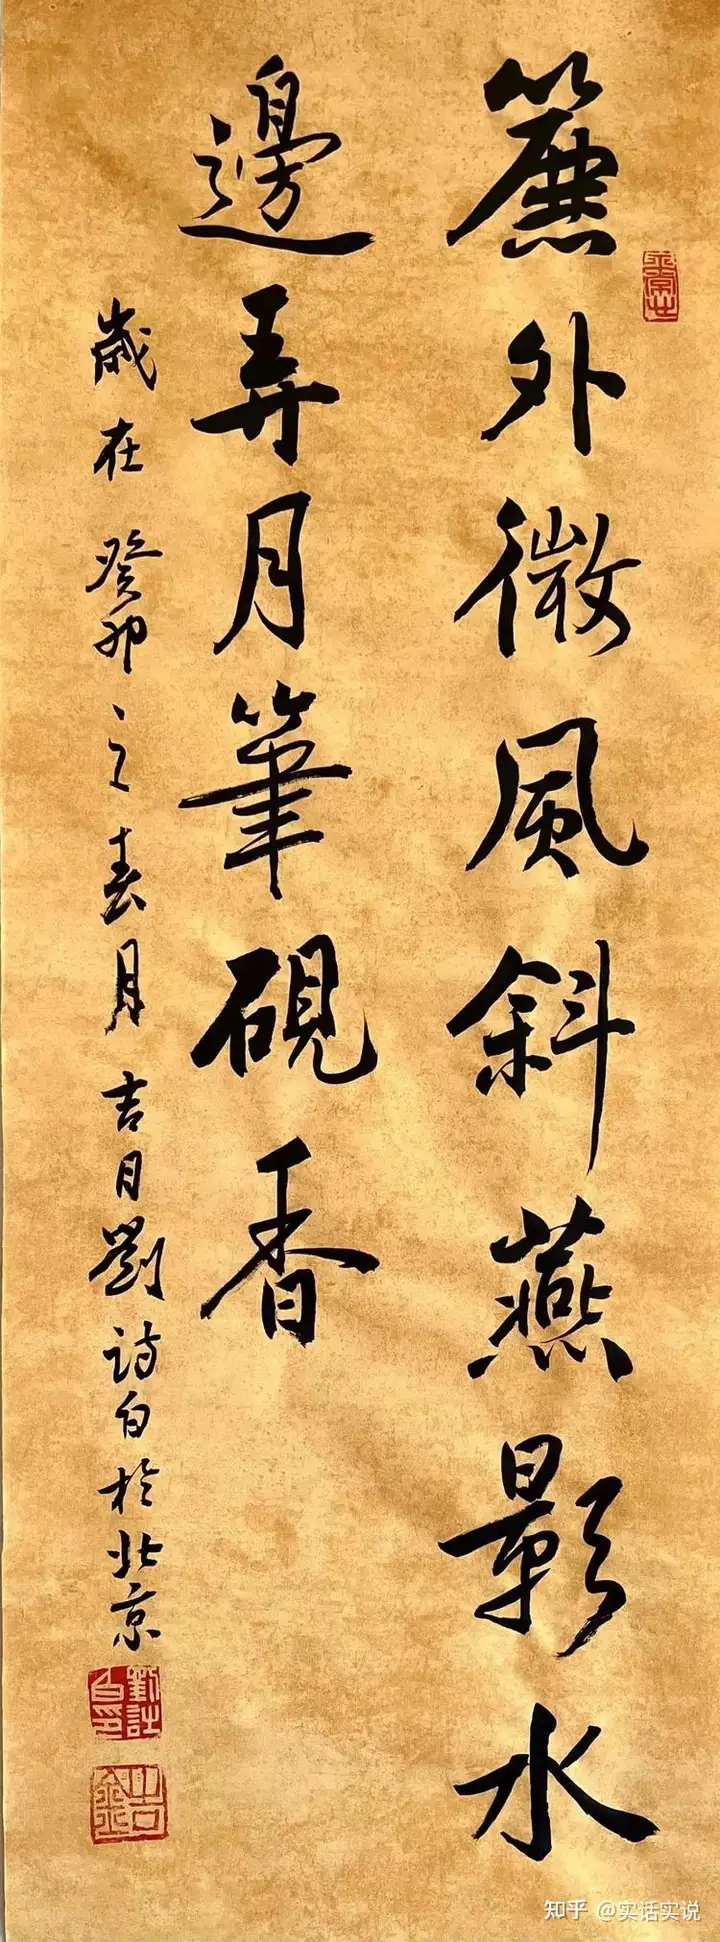 簾外微風斜燕影水
邊弄月筆硯香
歲在癸卯之春月吉日劉诗白於北京
知乎 @实话实说